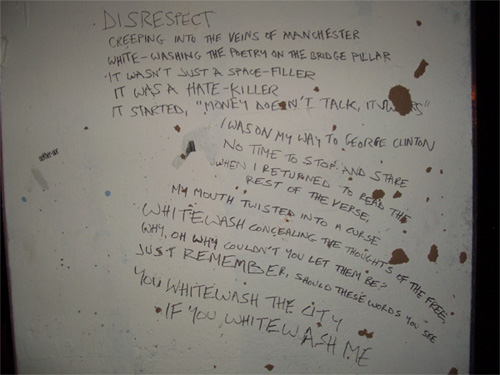 DISRESPECT
CREEPING INTO THE VEINS OF MANCHESTER
WHITE-WASHING THE POETRY ON THE BRIDGE PILLAR
IT WASN'T JUST A SPACE-FILLER
IT WAS A HATE-KILLER
IT STARTED, "MONEY DOESN'T TALK, IT SWEARS"
I WAS ON MY WAY TO GEORGE CLINTON
NO TIME TO STOP AND STARE
WHEN I RETURNED TO READ THE
REST OF THE VERSE,
MY MOUTH TWISTED INTO A CURSE
WHITEWASH CONCEALING THE THOUGHTS OF THE FREE,
WHY, OH WHY COULDN'T YOU LET THEM BE?
JUST REMEMBER, SHOULD THESE WORDS YOU SEE
YOU WHITEWASH THE CITY
IF YOU WHITEWASH ME